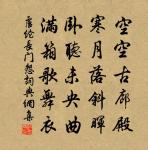 空空古廊殿
寒月落斜暉
臥聽未央曲
滿箱歌舞衣
盧綸長門怨詞典網集